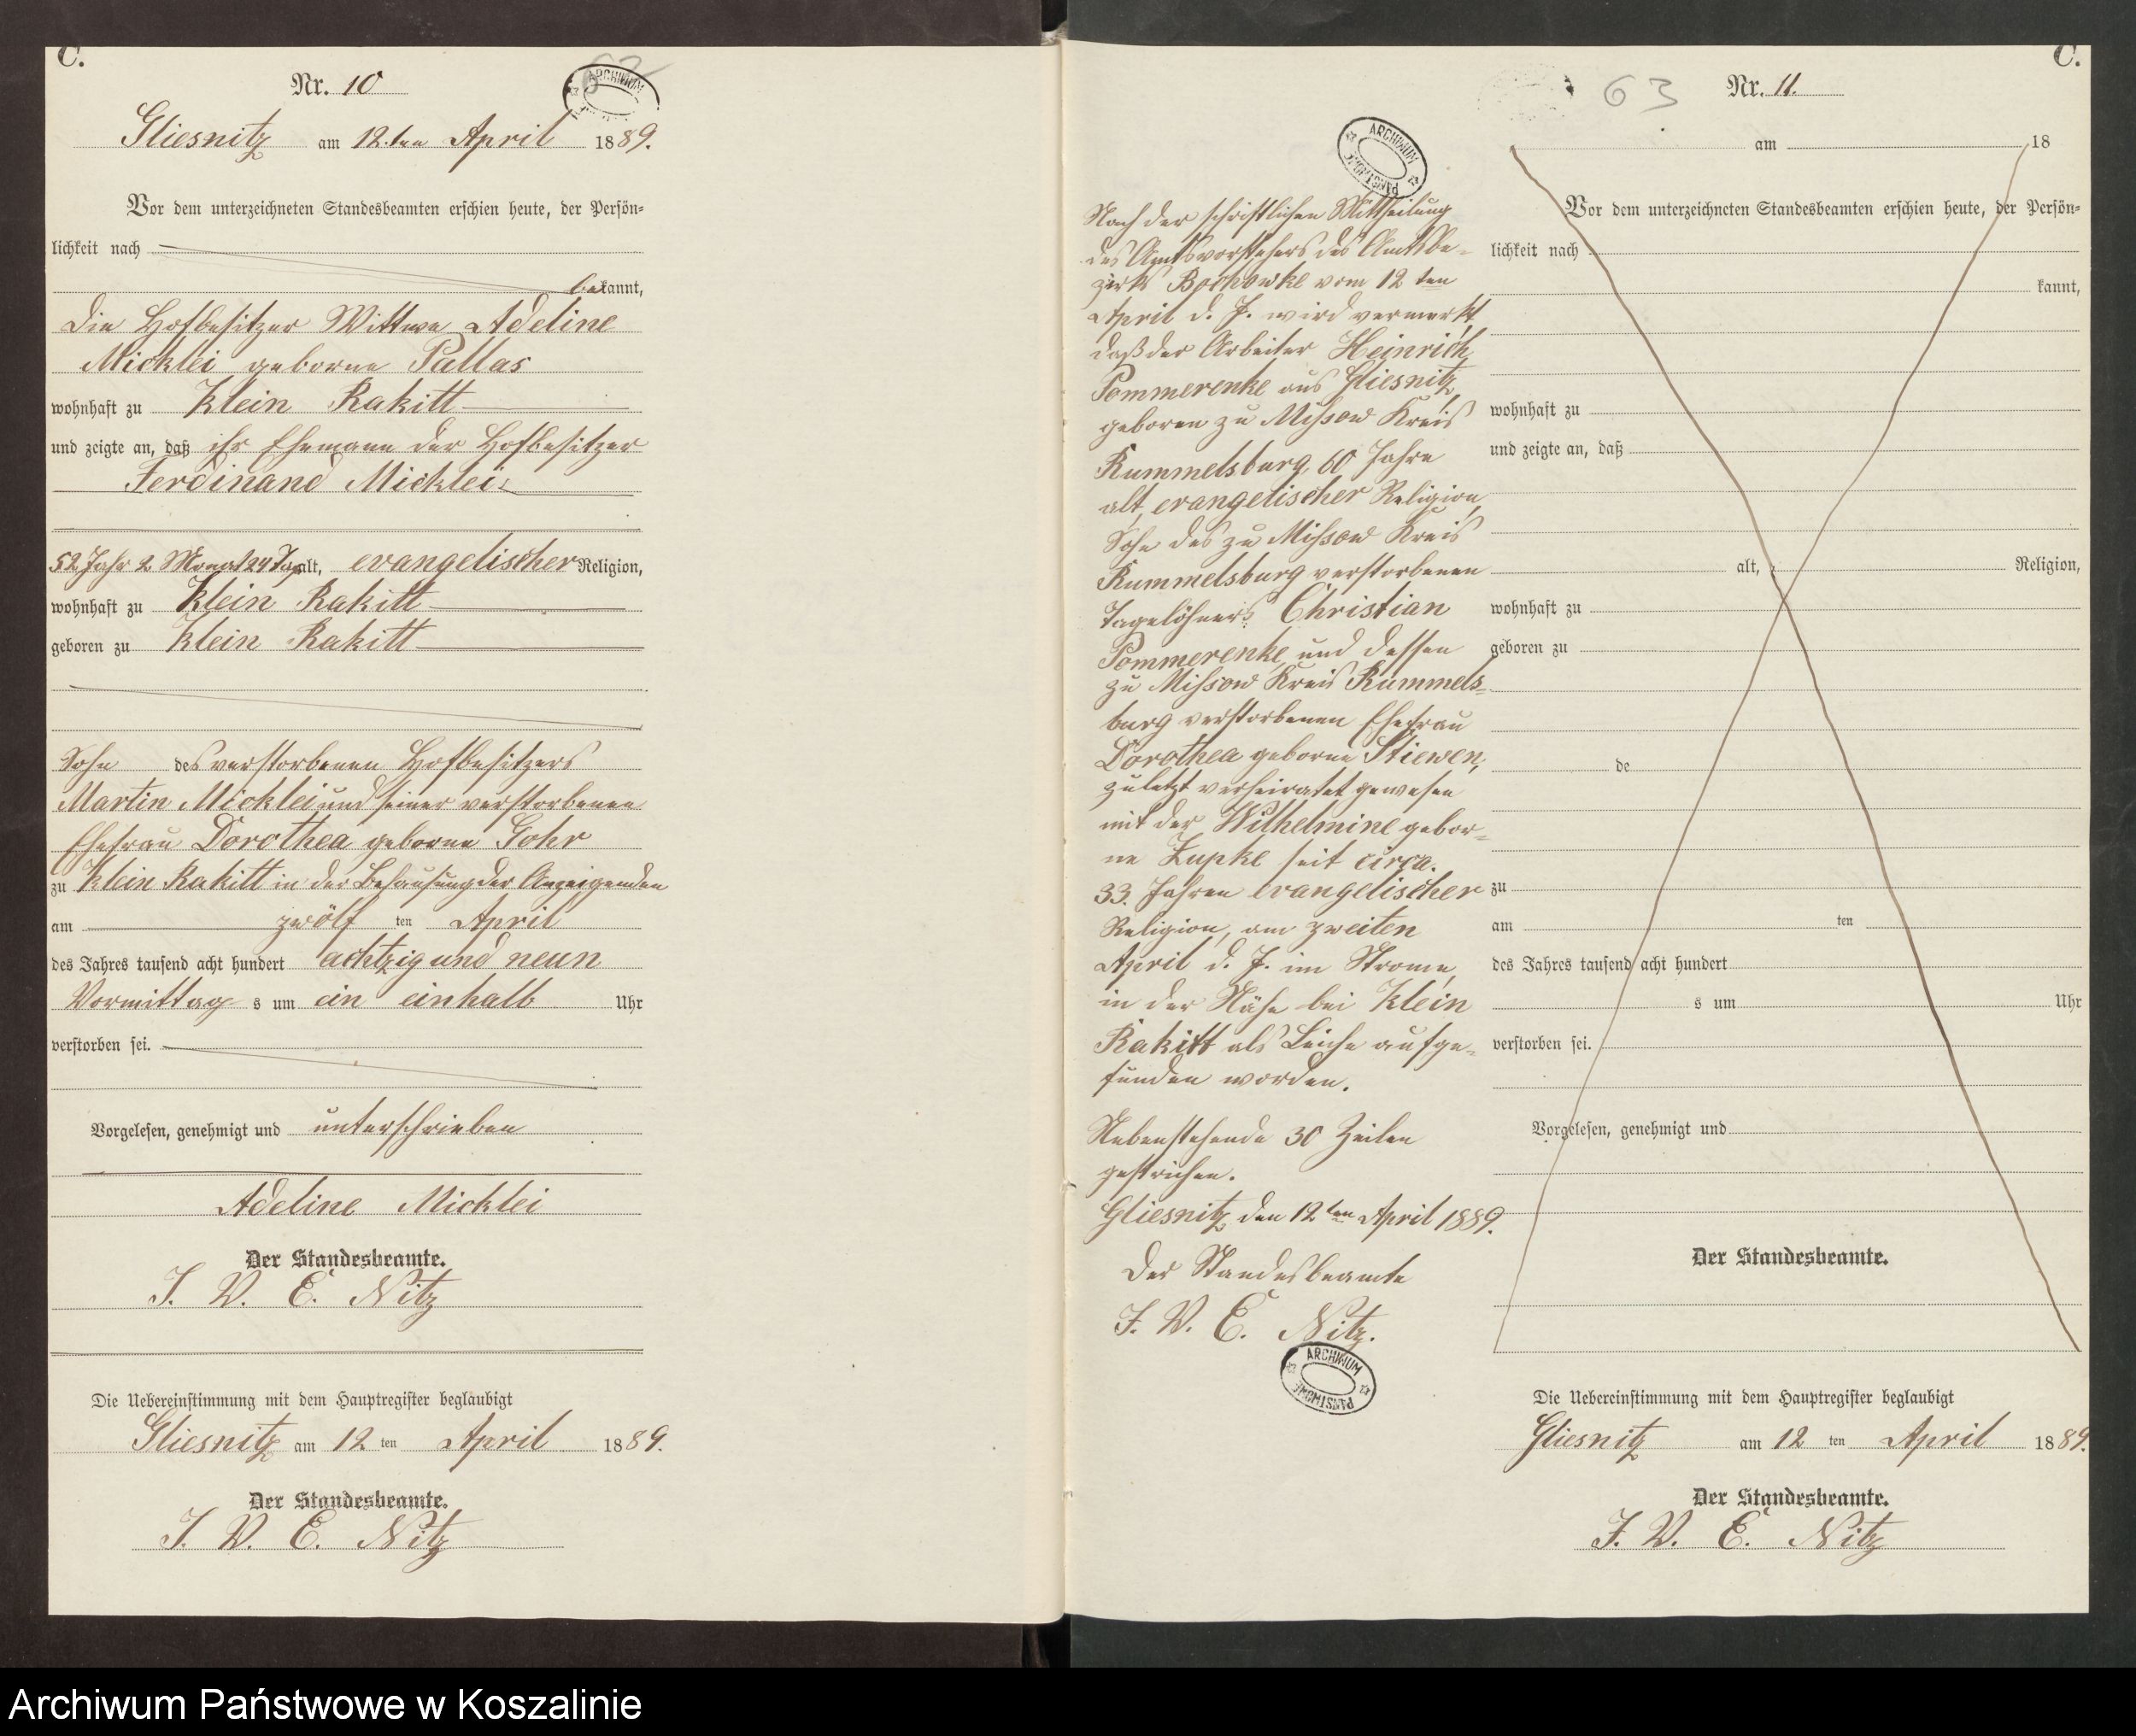 C.
Nr. 10
ARCHIWUM
Gliesnitz am 12ten April 1889.
Vor dem unterzeichneten Standesbeamten erschien heute, der Persön-
lichkeit nach
bekannt,
die Hofbesitzer Wittwe Adeline
Micklei geborne Pallas
wohnhaft zu Klein Rakitt
und zeigte an, daß ihr Ehemann der Hofbesitzer
Ferdinand Micklei
52 Jahr 2 Monat 24 Tag alt, evangelischer Religion,
wohnhaft zu Klein Rakitt
geboren zu Klein Rakitt
Sohn des verstorbenen Hofbesitzers
Martin Micklei und seiner verstorbenen
Ehefrau Dorothea geborne Gohr
zu Klein Rakitt in der Behausung der Anzeigenden
am zwölf ten April
des Jahres tausend acht hundert achtzig und neun
Vormittag s um ein einhalb Uhr
verstorben sei.
Vorgelesen, genehmigt und unterschrieben
Adeline Micklei
Der Standesbeamte.
J. V. E. Nitz
Die Uebereinstimmung mit dem Hauptregister beglaubigt
Gliesnitz am 12 ten April 1889.
Der Standesbeamte.
J. V. E. Nitz
C.
63 Nr. 11.
ARCHIWUM PAŃSTWOWE
Nach der schriftlichen Mittheilung
des Amtsvorstehers des Amtsbe-
zirks Bochowke vom 12 ten
April d. J. wird vermerkt,
daß der Arbeiter Heinrich
Pommerenke aus Gliesnitz,
geboren zu Missow Kreis
Rummelsburg, 60 Jahre
alt, evangelischer Religion,
Sohn des zu Missow Kreis
Rummelsburg verstorbenen
Tagelöhners Christian
Pommerenke, und dessen
zu Missow Kreis Rummels-
burg verstorbenen Ehefrau
Dorothea geborne Stiewen,
zuletzt verheiratet gewesen
mit der Wilhelmine gebor-
ne Zupke seit circa.
33. Jahren evangelischer
Religion, am zweiten
April d. J. im Strome,
in der Nähe bei Klein
Rakitt als Leiche aufge-
funden worden.
Nebenstehende 30 Zeilen
gestrichen.
Gliesnitz den 12ten April 1889.
Der Standesbeamte
J. V. E. Nitz.
ARCHIWUM PAŃSTWOWE
am 18
Vor dem unterzeichneten Standesbeamten erschien heute, der Persön-
lichkeit nach
kannt,
wohnhaft zu
und zeigte an, daß
alt, Religion,
wohnhaft zu
geboren zu
de
zu
am ten
des Jahres tausend acht hundert
s um Uhr
verstorben sei.
Vorgelesen, genehmigt und
Der Standesbeamte.
Die Uebereinstimmung mit dem Hauptregister beglaubigt
Gliesnitz am 12 ten April 1889.
Der Standesbeamte.
J. V. E. Nitz
Archiwum Państwowe w Koszalinie